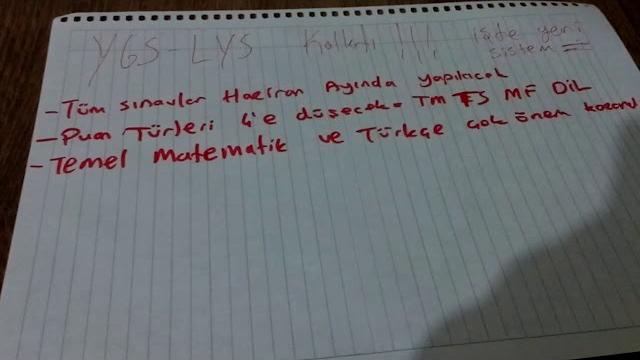 YGS-LYS Kalktı !!! İşte yeni sistem =
-Tüm sınavlar Haziran Ayında yapılacak
-Puan Türleri 4'e düşecek= TM TS MF DİL
-Temel Matematik ve Türkçe çok önem kazandı